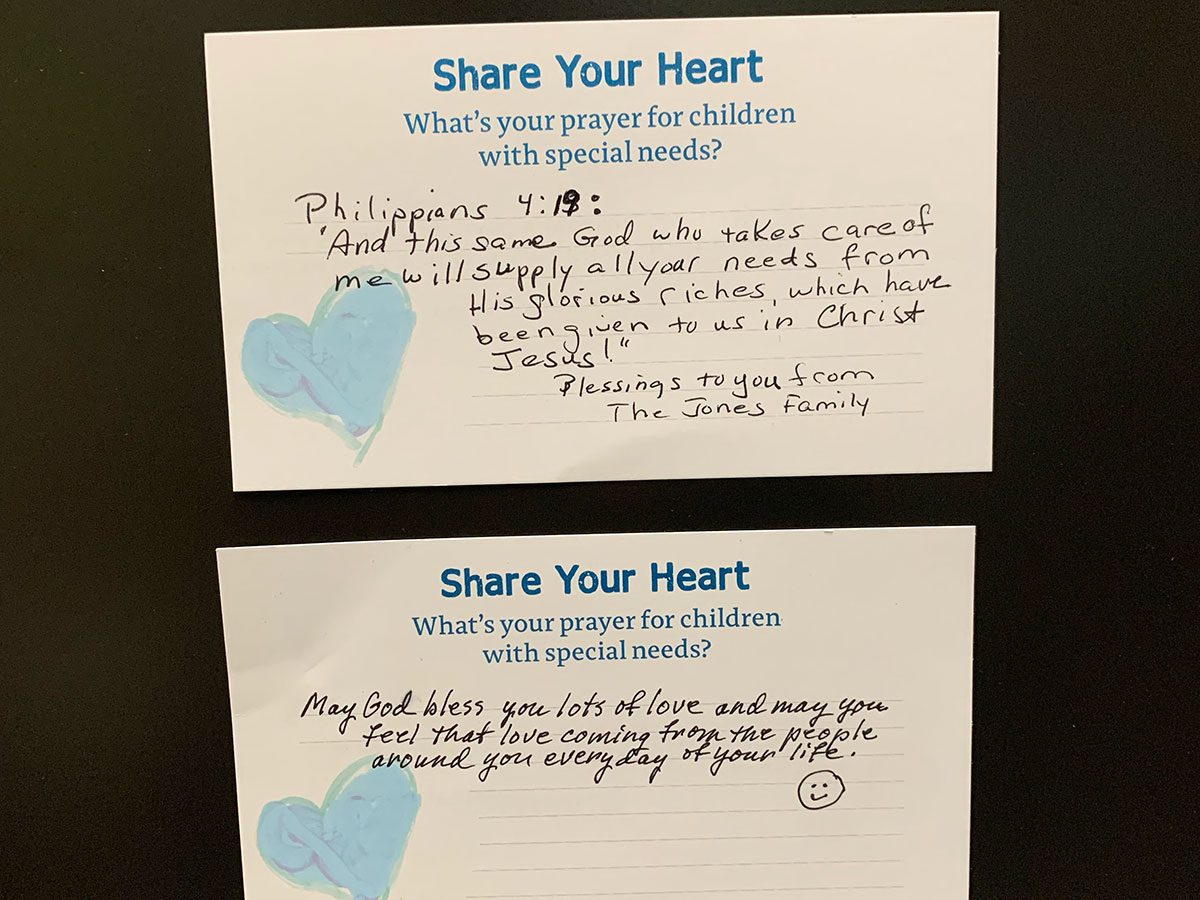 Share Your Heart
What's your prayer for children
with special needs?
Philippians 4:19:
"And this same God who takes care of
me will supply all your needs from
His glorious riches, which have
been given to us in Christ
Jesus!"
Blessings to you from
The Jones Family
Share Your Heart
What's your prayer for children
with special needs?
May God bless you lots of love and may you
feel that love coming from the people
around you everyday of your life.